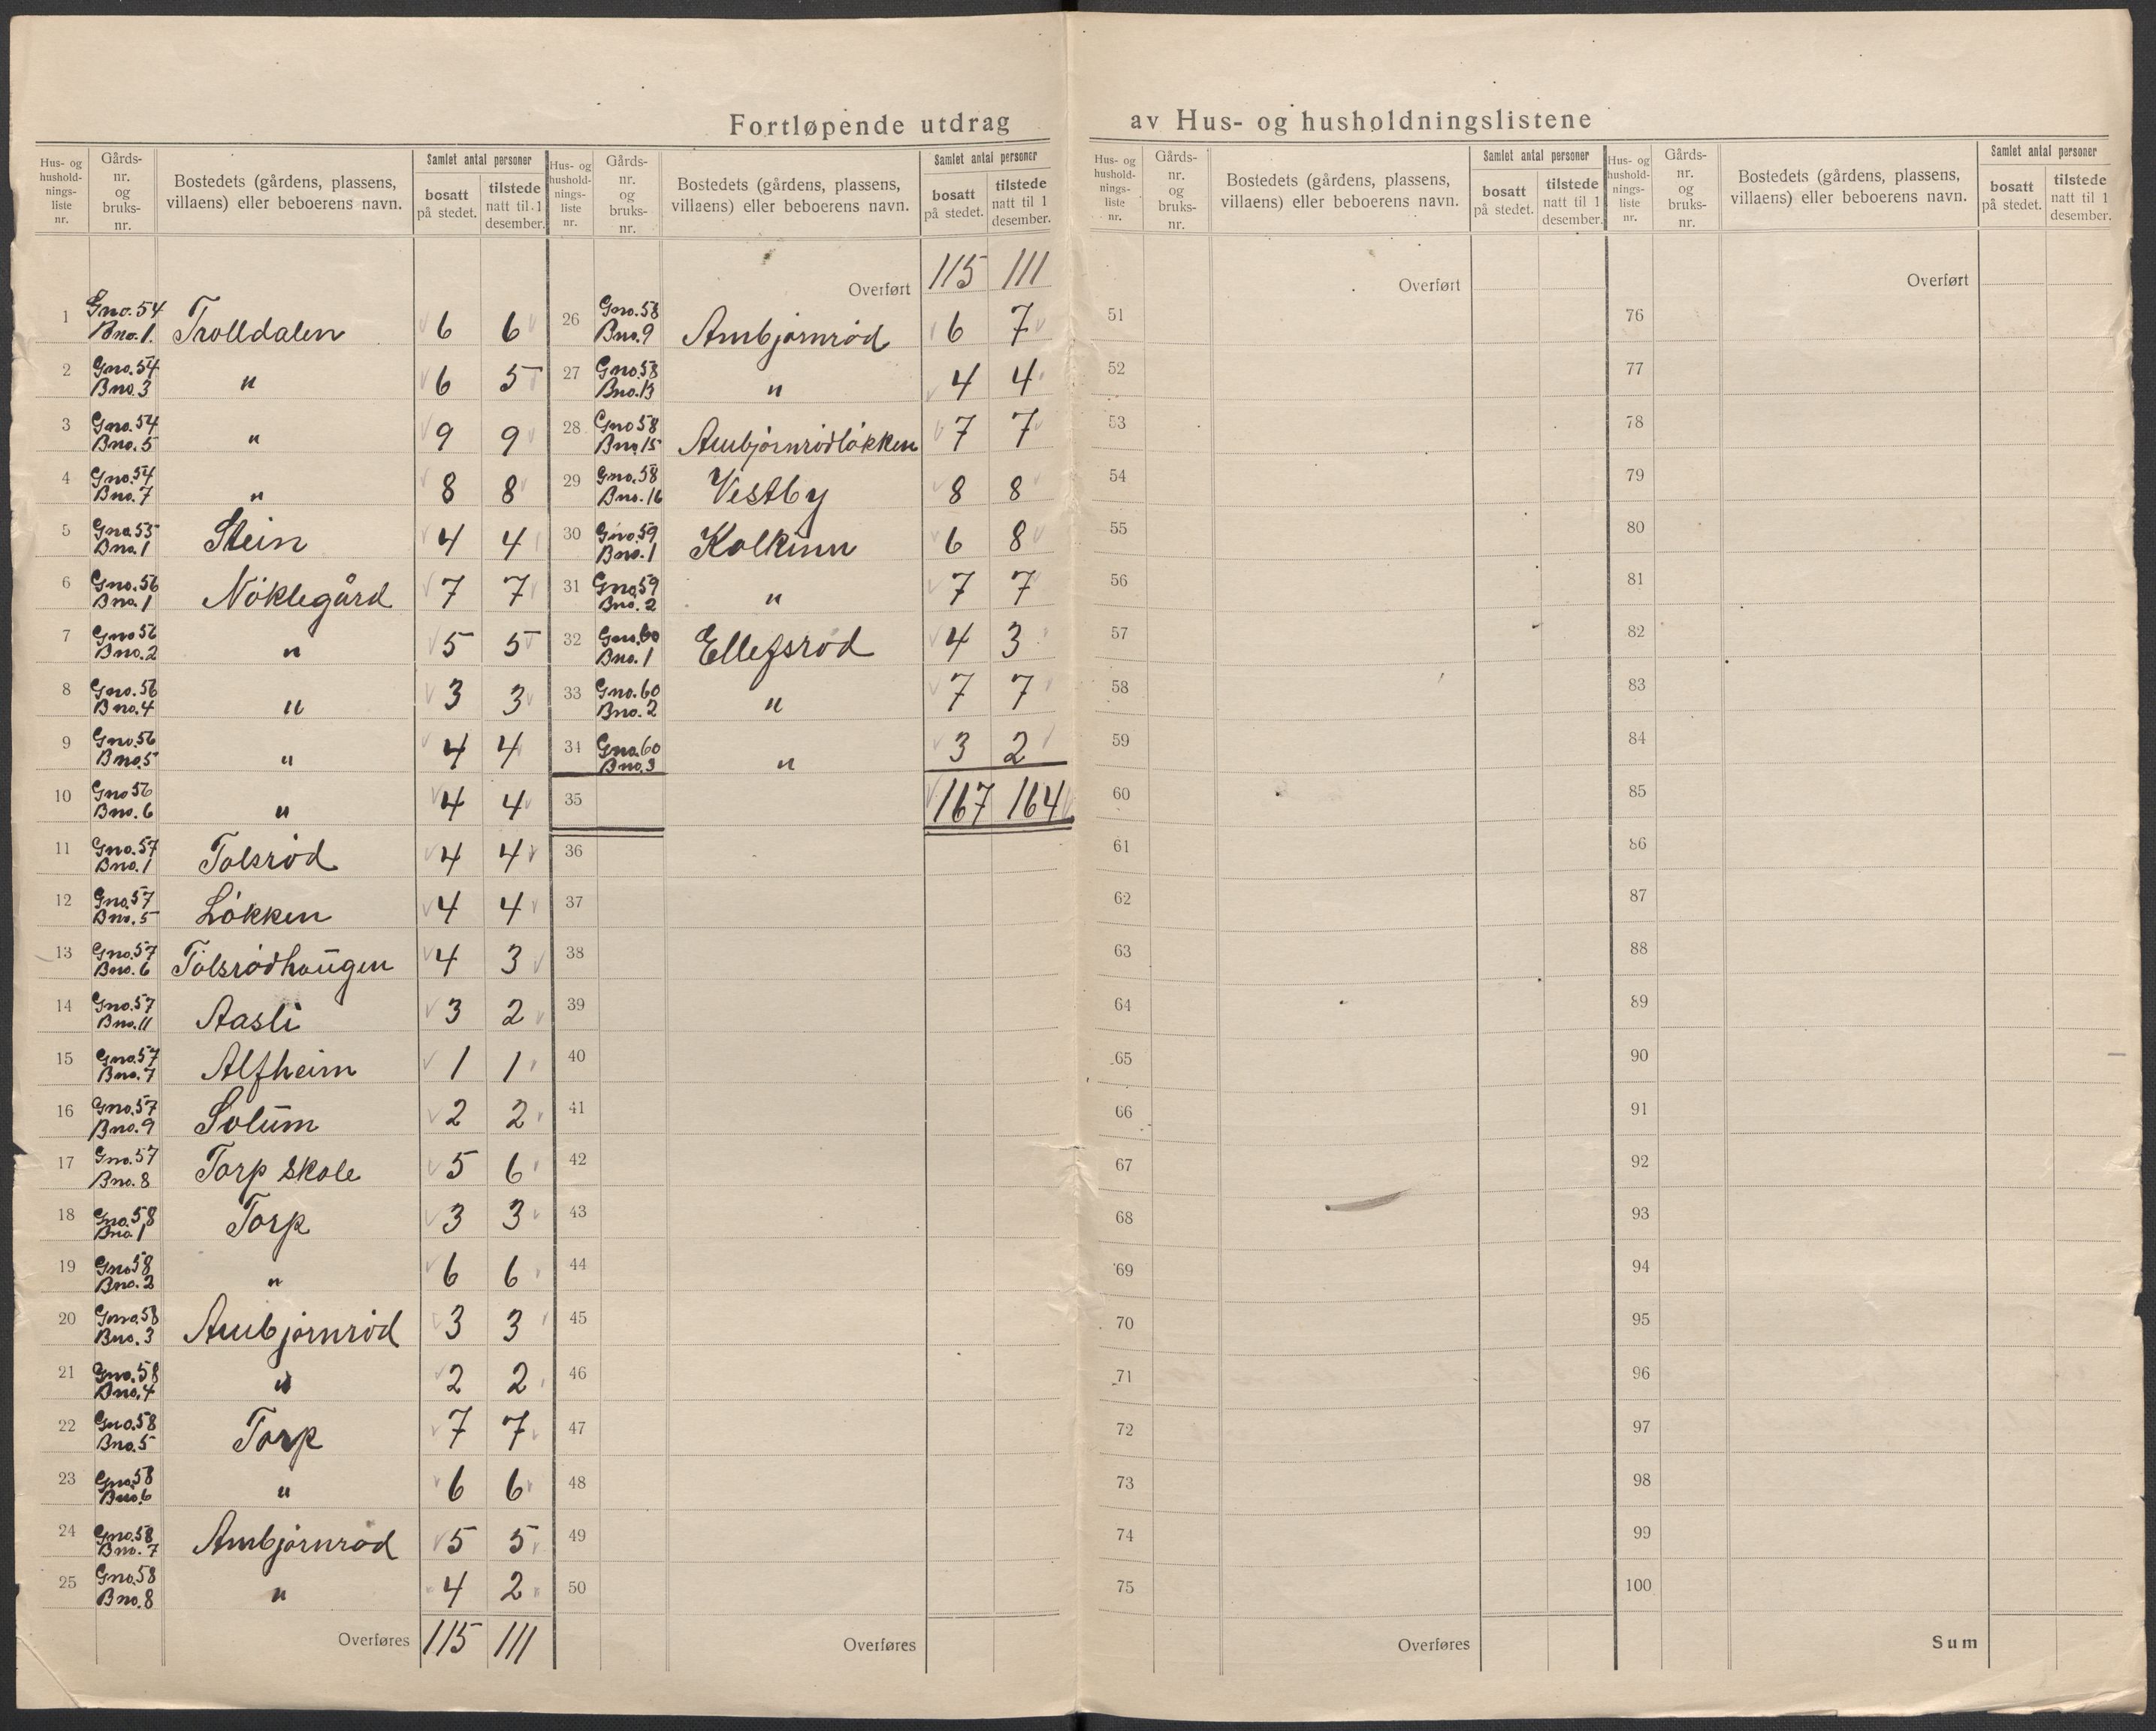 Fortløpende utdrag av Hus- og husholdningslistene
Hus- og husholdnings-liste nr. | Gårds-nr. og bruks-nr. | Bostedets (gårdens, plassens, villaens) eller beboerens navn. | Samlet antal personer | bosatt på stedet. | tilstede natt til 1 desember.
1 Gno. 54 Bno. 1. Trolldalen 6 6
2 Gno. 54 Bno. 3 " 6 5
3 Gno. 54 Bno. 5 " 9 9
4 Gno. 54 Bno. 7 " 8 8
5 Gno. 55 Bno. 1 Stein 4 4
6 Gno. 56 Bno. 1 Nöklegård 7 7
7 Gno 56 Bno. 2 " 5 5
8 Gno. 56 Bno. 4 " 3 3
9 Gno. 56 Bno. 5 " 4 4
10 Gno 56 Bno. 6 " 4 4
11 Gno. 57 Bno. 1 Tolsröd 4 4
12 Gno. 57 Bno. 5 Lökken 4 4
13 Gno. 57 Bno. 6 Tolsrödhaugen 4 3
14 Gno. 57 Bno. 11 Aasli 3 2
15 Gno. 57 Bno. 7 Alfheim 1 1
16 Gno. 57 Bno. 9 Solum 2 2
17 Gno. 57 Bno. 8 Torp skole 5 6
18 Gno. 58 Bno. 1 Torp 3 3
19 Gno 58 Bno. 2 " 6 6
20 Gno. 58 Bno. 3 Ambjörnröd 3 3
21 Gno. 58 Bno. 4 " 2 2
22 Gno. 58 Bno. 5 Torp 7 7
23 Gno. 58 Bno. 6 " 6 6
24 Gno. 58 Bno. 7 Ambjörnröd 5 5
25 Gno. 58 Bno. 8 " 4 2
Overføres 115 111
Hus- og husholdnings-liste nr. | Gårds-nr. og bruks-nr. | Bostedets (gårdens, plassens, villaens) eller beboerens navn. | Samlet antal personer | bosatt på stedet. | tilstede natt til 1 desember.
Overført 115 111
26 Gno. 58 Bno. 9 Ambjörnröd 6 7
27 Gno. 58 Bno. 13 " 4 4
28 Gno 58 Bno. 15 Ambjörnrödlökken 7 7
29 Gno. 58 Bno. 16 Vestby 8 8
30 Gno. 59 Bno. 1 Kolkinn 6 8
31 Gno. 59 Bno. 2 " 7 7
32 Gno. 60 Bno. 1 Ellefsröd 4 3
33 Gno. 60 Bno. 2 " 7 7
34 Gno. 60 Bno. 3 " 3 2
35 167 164
36
37
38
39
40
41
42
43
44
45
46
47
48
49
50
Overføres
Hus- og husholdnings-liste nr. | Gårds-nr. og bruks-nr. | Bostedets (gårdens, plassens, villaens) eller beboerens navn. | Samlet antal personer | bosatt på stedet. | tilstede natt til 1 desember.
Overført
51
52
53
54
55
56
57
58
59
60
61
62
63
64
65
66
67
68
69
70
71
72
73
74
75
Overføres
Hus- og husholdnings-liste nr. | Gårds-nr. og bruks-nr. | Bostedets (gårdens, plassens, villaens) eller beboerens navn. | Samlet antal personer | bosatt på stedet. | tilstede natt til 1 desember.
Overført
76
77
78
79
80
81
82
83
84
85
86
87
88
89
90
91
92
93
94
95
96
97
98
99
100
Sum